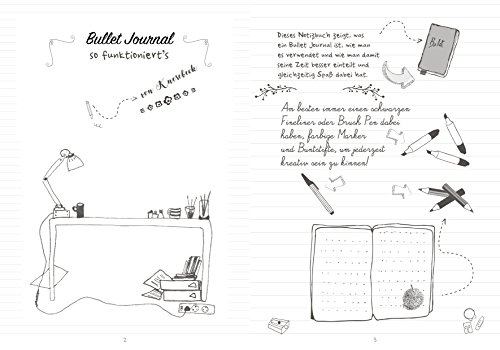 Bullet Journal
so funktioniert's
von Knesebeck
2
Dieses Notizbuch zeigt, was
ein Bullet Journal ist, wie man
es verwendet und wie man damit
seine Zeit besser einteilt und
gleichzeitig Spaß dabei hat.
Bullet
Am besten immer einen schwarzen
Fineliner oder Brush Pen dabei
haben, farbige Marker
und Buntstifte, um jederzeit
kreativ sein zu können!
3